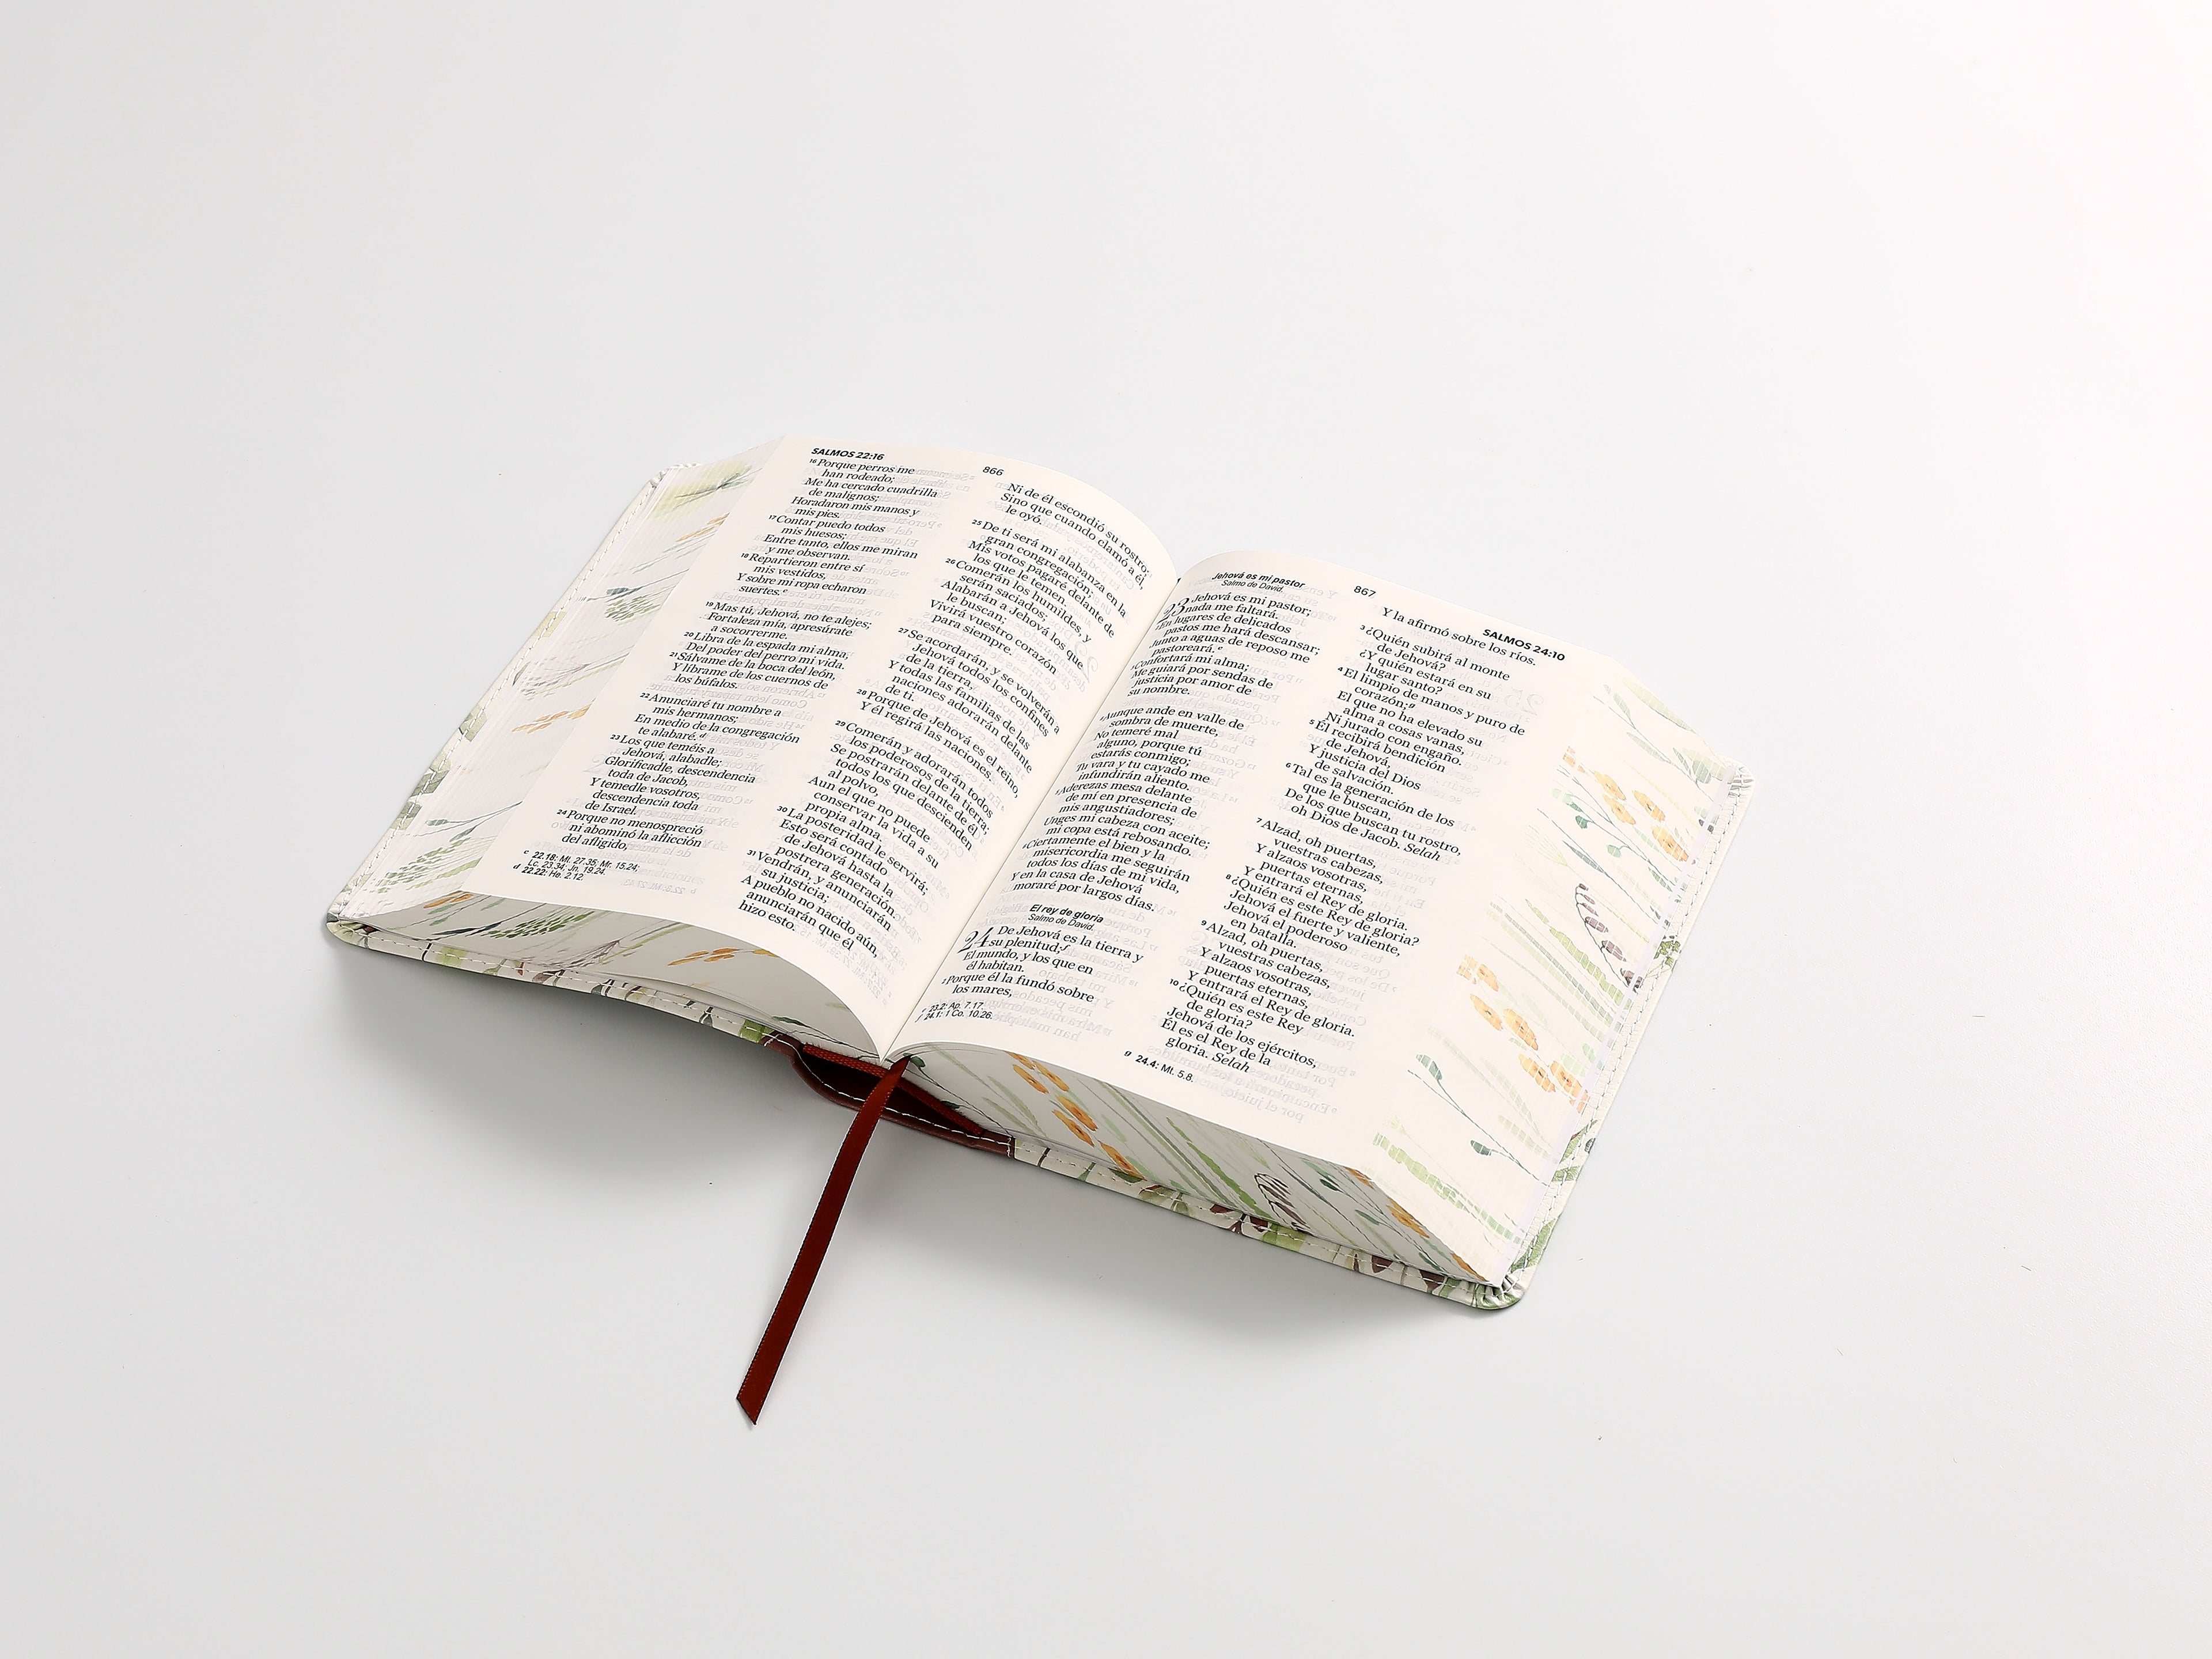 SALMOS 22:16
866
16 Porque perros me
han rodeado;
Me ha cercado cuadrilla
de malignos;
Horadaron mis manos y
mis pies.
17 Contar puedo todos
mis huesos;
Entre tanto, ellos me miran
y me observan.
18 Repartieron entre sí
mis vestidos,
Y sobre mi ropa echaron
suertes. c
19 Mas tú, Jehová, no te alejes;
Fortaleza mía, apresúrate
a socorrerme.
20 Libra de la espada mi alma,
Del poder del perro mi vida.
21 Sálvame de la boca del león,
Y líbrame de los cuernos de
los búfalos.
22 Anunciaré tu nombre a
mis hermanos;
En medio de la congregación
te alabaré. d
23 Los que teméis a
Jehová, alabadle;
Glorificadle, descendencia
toda de Jacob,
Y temedle vosotros,
descendencia toda
de Israel.
24 Porque no menospreció
ni abominó la aflicción
del afligido,
c 22.18: Mt. 27.35; Mr. 15.24;
Lc. 23.34; Jn. 19.24.
d 22.22: He. 2.12.
Ni de él escondió su rostro;
Sino que cuando clamó a él,
le oyó.
25 De ti será mi alabanza en la
gran congregación;
Mis votos pagaré delante de
los que le temen.
26 Comerán los humildes, y
serán saciados;
Alabarán a Jehová los que
le buscan;
Vivirá vuestro corazón
para siempre.
27 Se acordarán, y se volverán a
Jehová todos los confines
de la tierra,
Y todas las familias de las
naciones adorarán delante
de ti.
28 Porque de Jehová es el reino,
Y él regirá las naciones.
29 Comerán y adorarán todos
los poderosos de la tierra;
Se postrarán delante de él
todos los que descienden
al polvo,
Aun el que no puede
conservar la vida a su
propia alma.
30 La posteridad le servirá;
Esto será contado
de Jehová hasta la
postrera generación.
31 Vendrán, y anunciarán
su justicia;
A pueblo no nacido aún,
anunciarán que él
hizo esto.
867
SALMOS 24:10
Jehová es mi pastor
Salmo de David.
23 Jehová es mi pastor;
nada me faltará.
2 En lugares de delicados
pastos me hará descansar;
Junto a aguas de reposo me
pastoreará. e
3 Confortará mi alma;
Me guiará por sendas de
justicia por amor de
su nombre.
4 Aunque ande en valle de
sombra de muerte,
No temeré mal
alguno, porque tú
estarás conmigo;
Tu vara y tu cayado me
infundirán aliento.
5 Aderezas mesa delante
de mí en presencia de
mis angustiadores;
Unges mi cabeza con aceite;
mi copa está rebosando.
6 Ciertamente el bien y la
misericordia me seguirán
todos los días de mi vida,
Y en la casa de Jehová
moraré por largos días.
El rey de gloria
Salmo de David.
24 De Jehová es la tierra y
su plenitud; f
El mundo, y los que en
él habitan.
2 Porque él la fundó sobre
los mares,
e 23.2: Ap. 7.17.
f 24.1: 1 Co. 10.26.
Y la afirmó sobre los ríos.
3 ¿Quién subirá al monte
de Jehová?
¿Y quién estará en su
lugar santo?
4 El limpio de manos y puro de
corazón; g
El que no ha elevado su
alma a cosas vanas,
Ni jurado con engaño.
5 Él recibirá bendición
de Jehová,
Y justicia del Dios
de salvación.
6 Tal es la generación de los
que le buscan,
De los que buscan tu rostro,
oh Dios de Jacob. Selah
7 Alzad, oh puertas,
vuestras cabezas,
Y alzaos vosotras,
puertas eternas,
Y entrará el Rey de gloria.
8 ¿Quién es este Rey de gloria?
Jehová el fuerte y valiente,
Jehová el poderoso
en batalla.
9 Alzad, oh puertas,
vuestras cabezas,
Y alzaos vosotras,
puertas eternas,
Y entrará el Rey de gloria.
10 ¿Quién es este Rey
de gloria?
Jehová de los ejércitos,
Él es el Rey de la
gloria. Selah
g 24.4: Mt. 5.8.